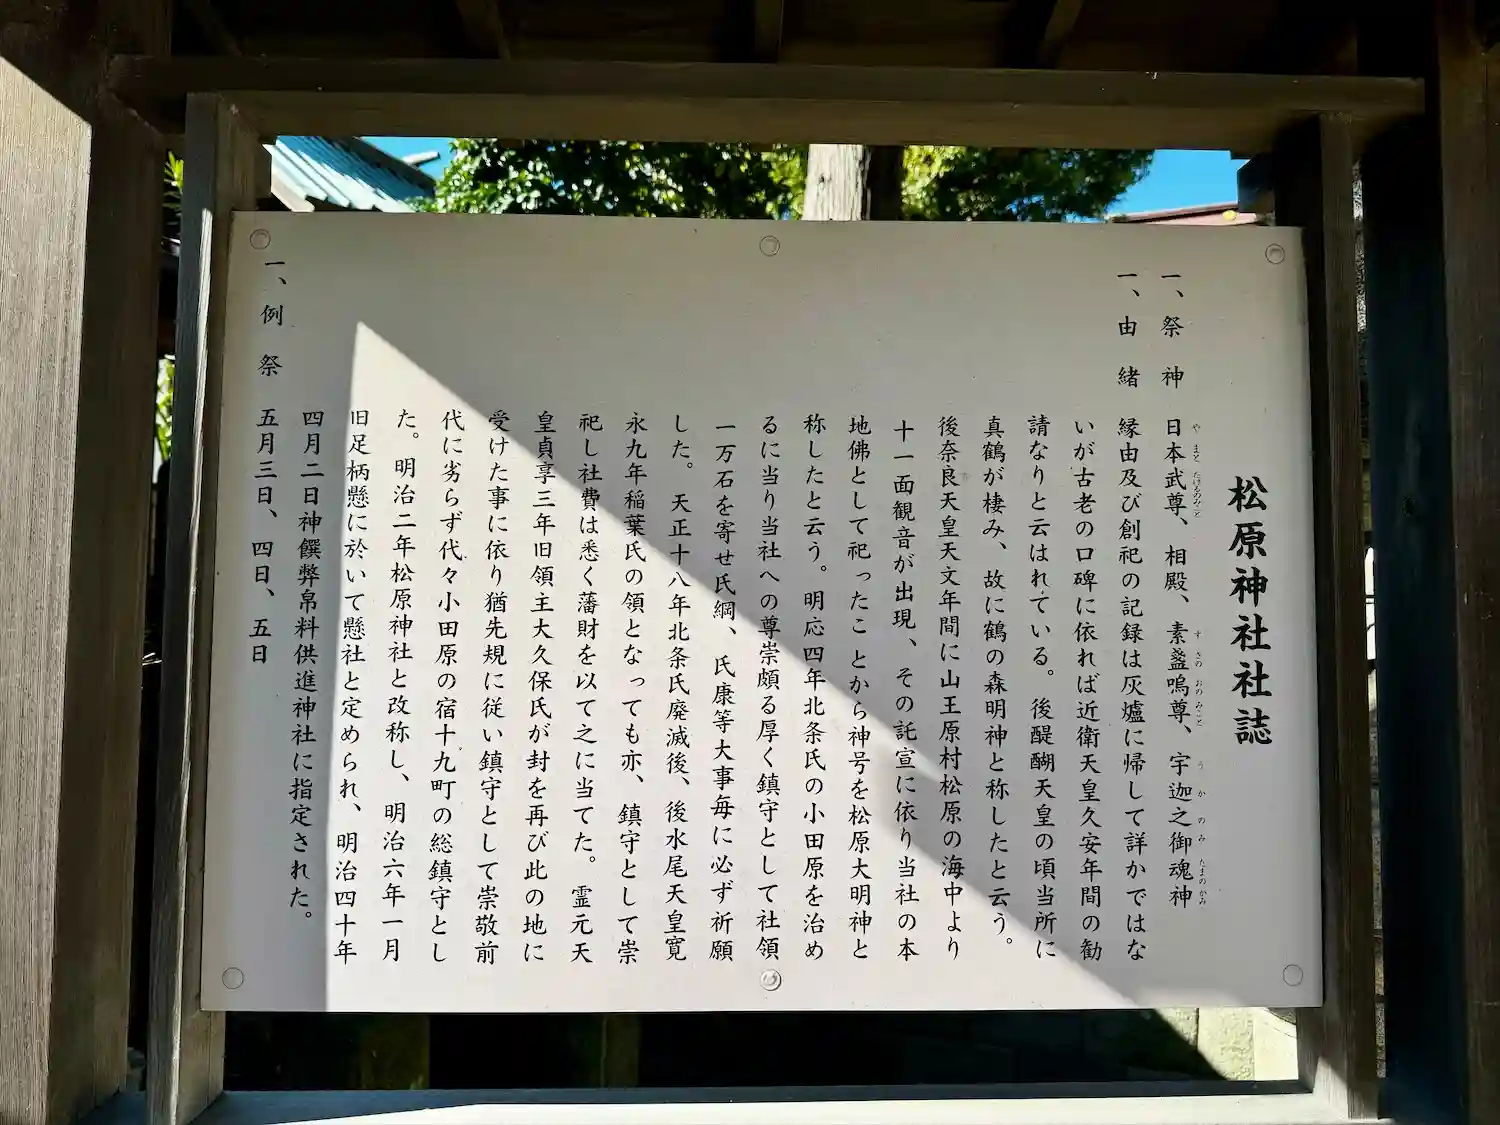 松原神社社誌
一、祭神 日本武尊、相殿、素盞嗚尊、宇迦之御魂神
やまとたけるのみこと すさのおのみこと うかのみたまのかみ
一、由緒 縁由及び創祀の記録は灰爐に帰して詳かではな
いが古老の口碑に依れば近衛天皇久安年間の勧
請なりと云はれている。後醍醐天皇の頃当所に
真鶴が棲み、故に鶴の森明神と称したと云う。
後奈良天皇天文年間に山王原村松原の海中より
十一面観音が出現、その託宣に依り当社の本
地佛として祀ったことから神号を松原大明神と
称したと云う。明応四年北条氏の小田原を治め
るに当り当社への尊崇頗る厚く鎮守として社領
一万石を寄せ氏綱、氏康等大事毎に必ず祈願
した。天正十八年北条氏廃滅後、後水尾天皇寛
永九年稲葉氏の領となっても亦、鎮守として崇
祀し社費は悉く藩財を以て之に当てた。霊元天
皇貞享三年旧領主大久保氏が封を再び此の地に
受けた事に依り猶先規に従い鎮守として崇敬前
代に劣らず代々小田原の宿十九町の総鎮守とし
た。明治二年松原神社と改称し、明治六年一月
旧足柄懸に於いて懸社と定められ、明治四十年
四月二日神饌弊帛料供進神社に指定された。
一、例祭 五月三日、四日、五日